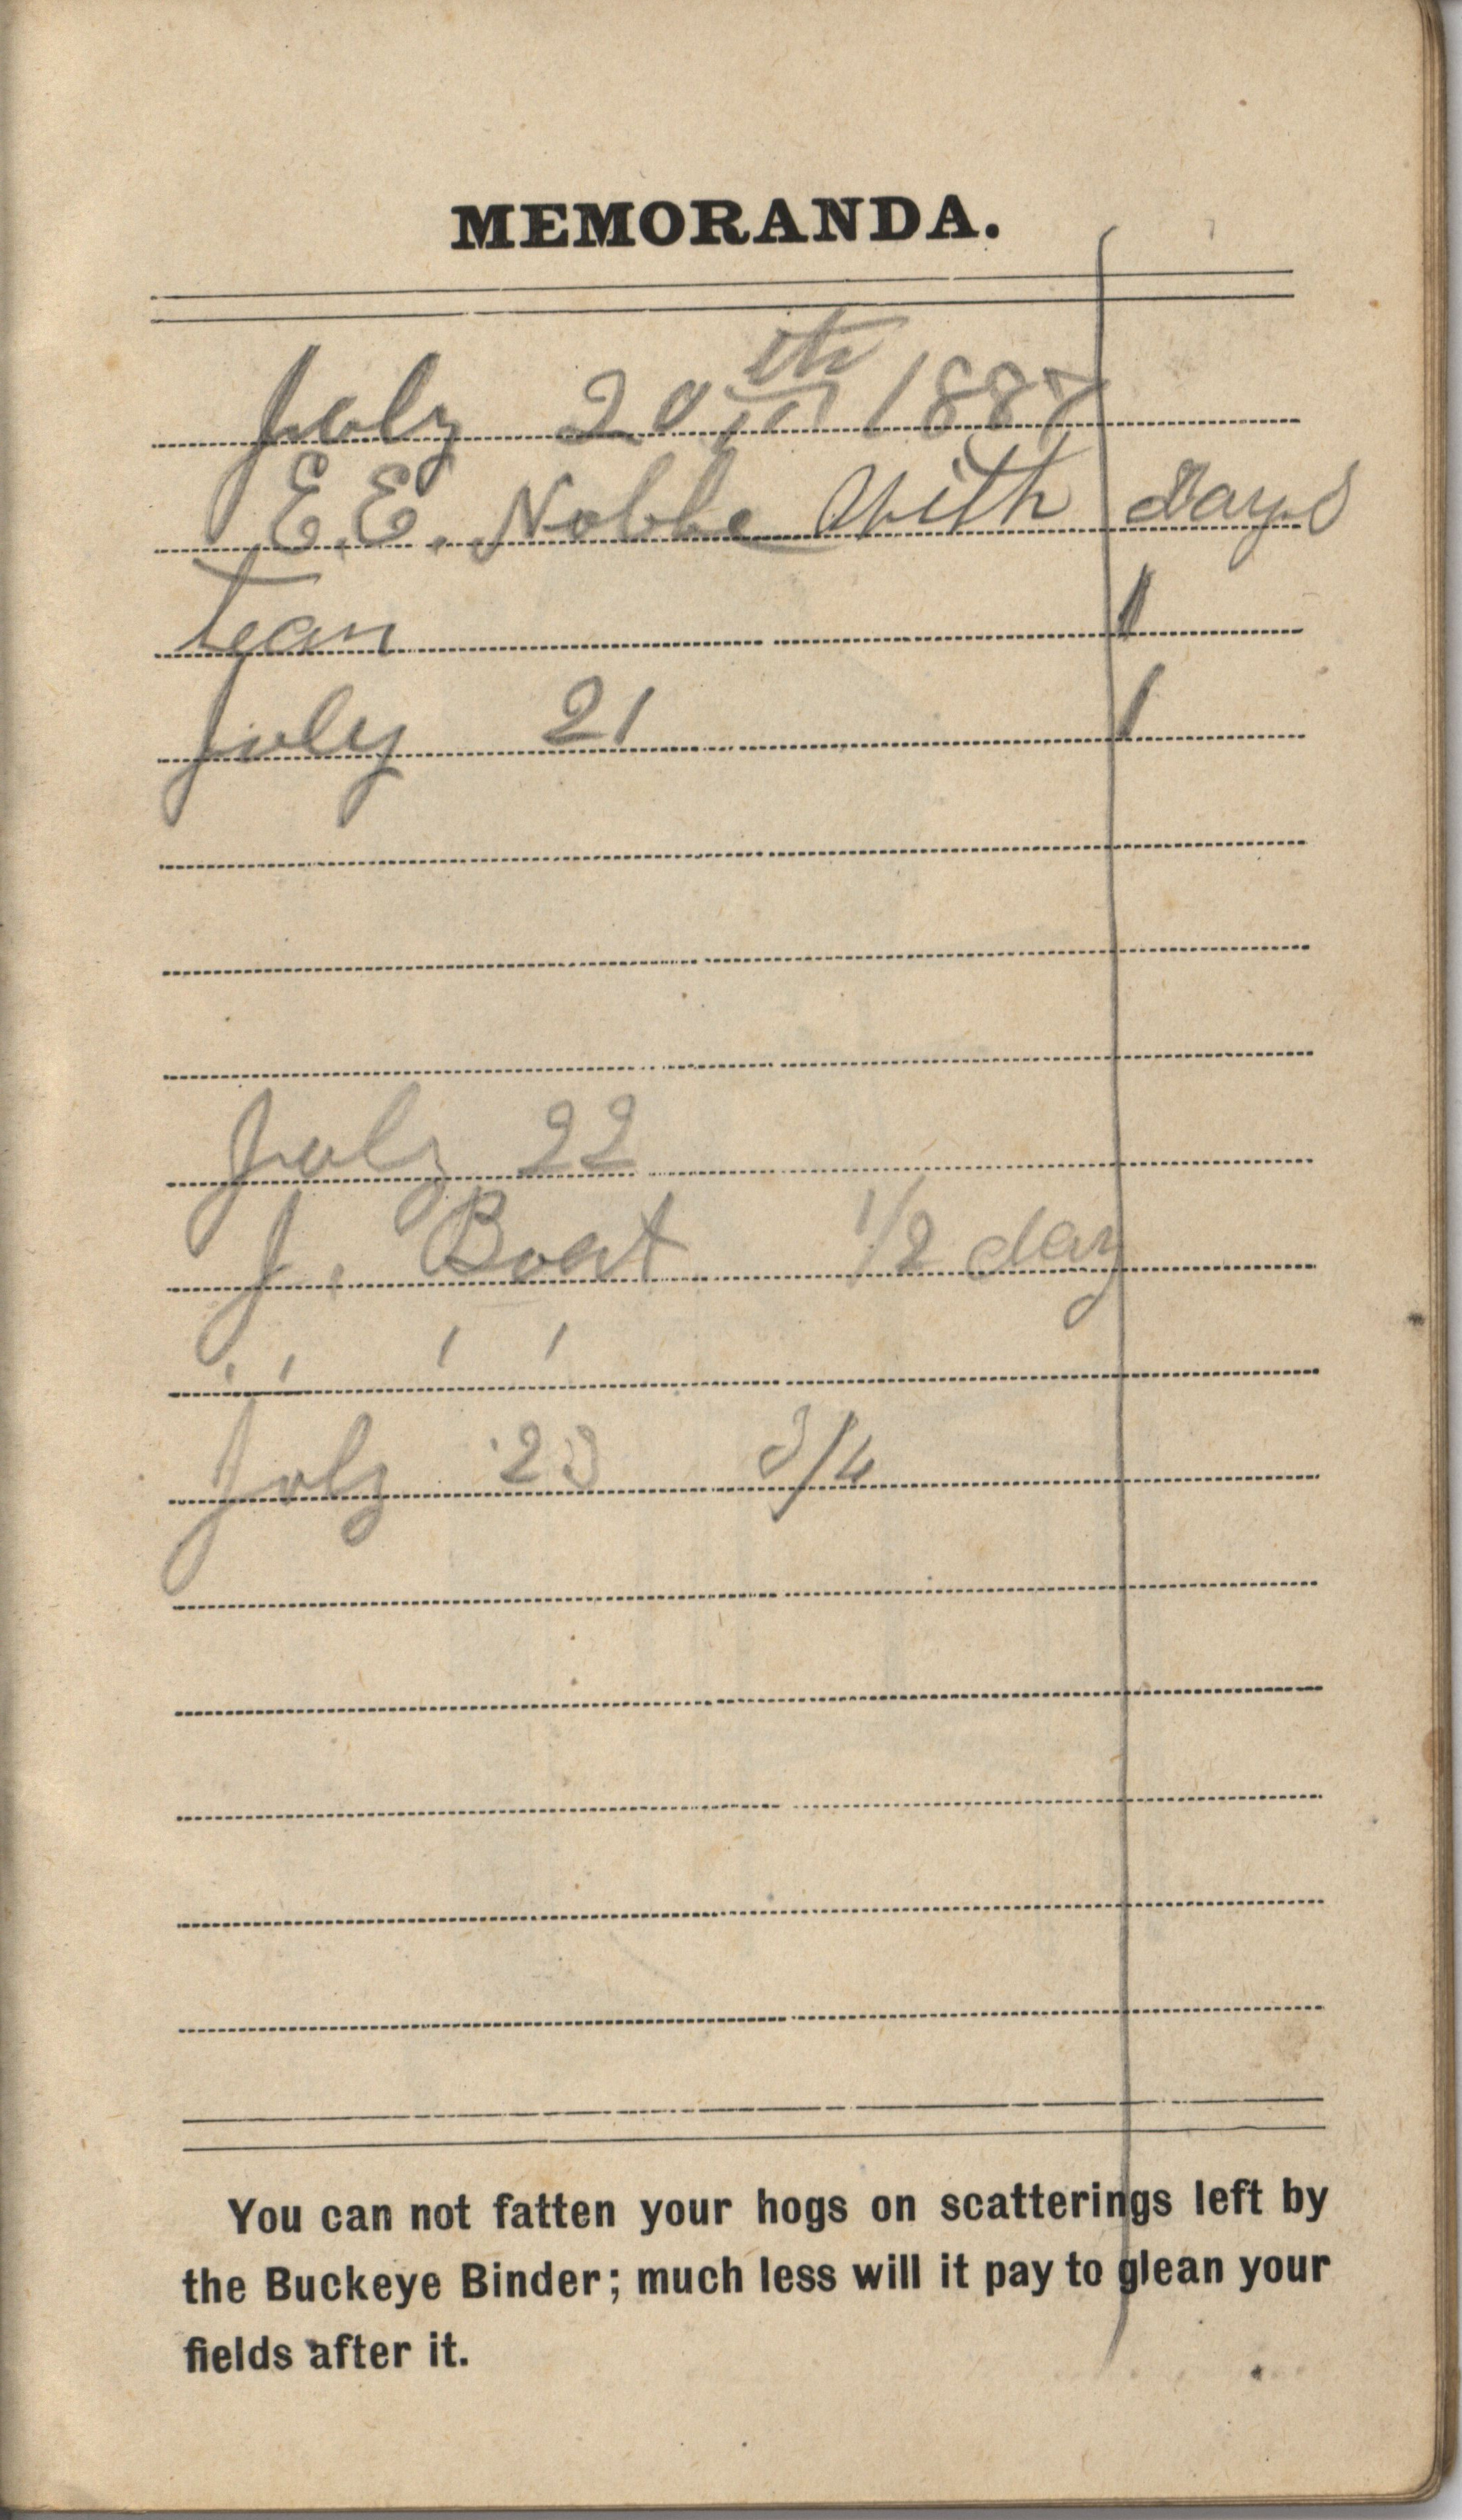 MEMORANDA.
July 20th 1887
E.E. Noble with days
tean 1
July 21 1
July 22
J. Boat 1/2 day
' ' ' '
July 23 3/4
You can not fatten your hogs on scatterings left by
the Buckeye Binder; much less will it pay to glean your
fields after it.